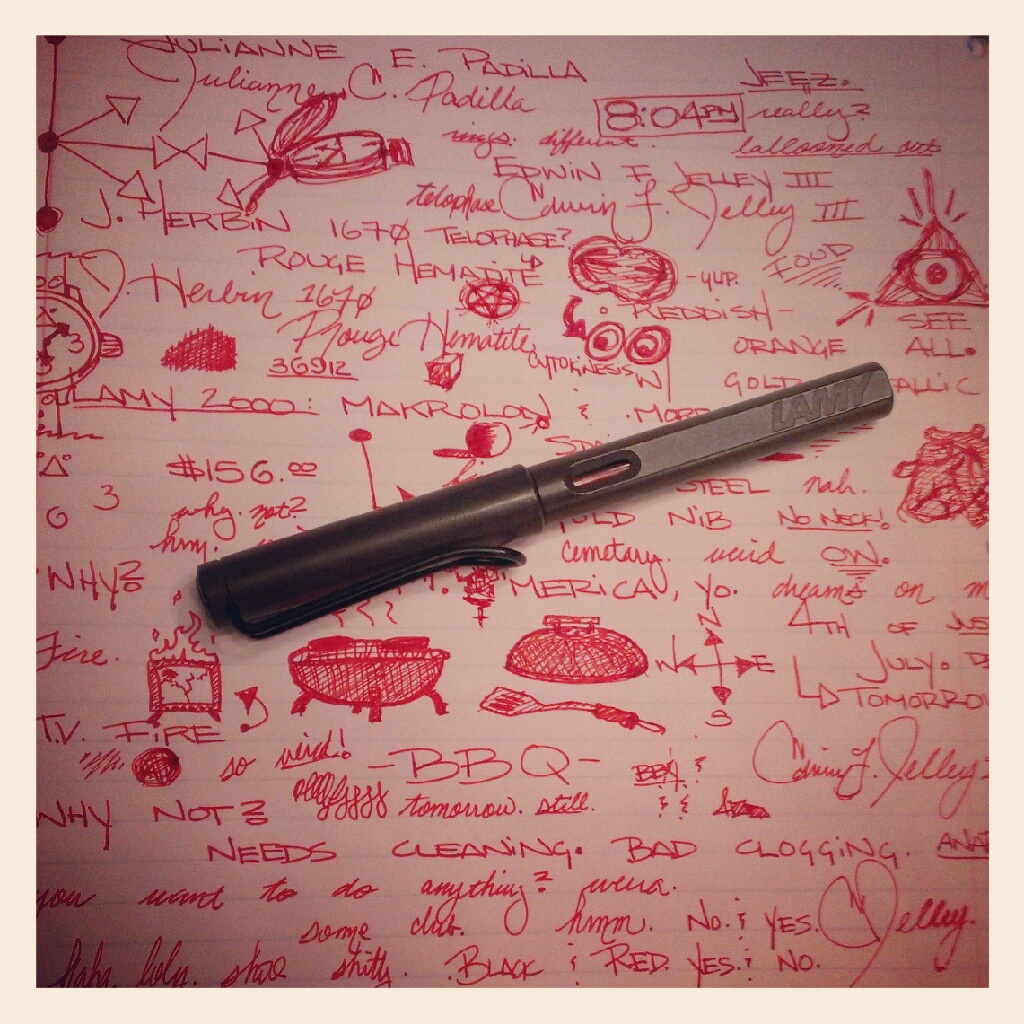 JULIANNE E. PADILLA
JEEZ.
Julianne C. Padilla
8:04PM
really?
different.
EDWIN F. JELLEY III
telophase Edwin F. Jelley III
J. HERBIN 1670 TELOPHASE?
ROUGE HEMATITE
-YUP.
FOOD
Herbin 1670
REDDISH-
SEE
Rouge Hematite
CYTOKINESIS
ORANGE
ALL.
3
36912
GOLD
LAMY 2000: MAKROLON &
LAMY
$156.00
6 3
why not?
STEEL nah.
hm.
GOLD NIB NO NECK!
cemetary. weird OW.
WHY?
'MERICA, YO. dreams on
4TH OF
N
W E
S
Fire.
JULY.
TOMORROW
T.V. FIRE
so weird!
-BBQ-
Edwin F. Jelley
WHY NOT?
tomorrow. still.
NEEDS CLEANING. BAD CLOGGING.
you want to do anything?
some club. hmm. NO. & YES.
Jelley.
BLACK & RED. YES. & NO.